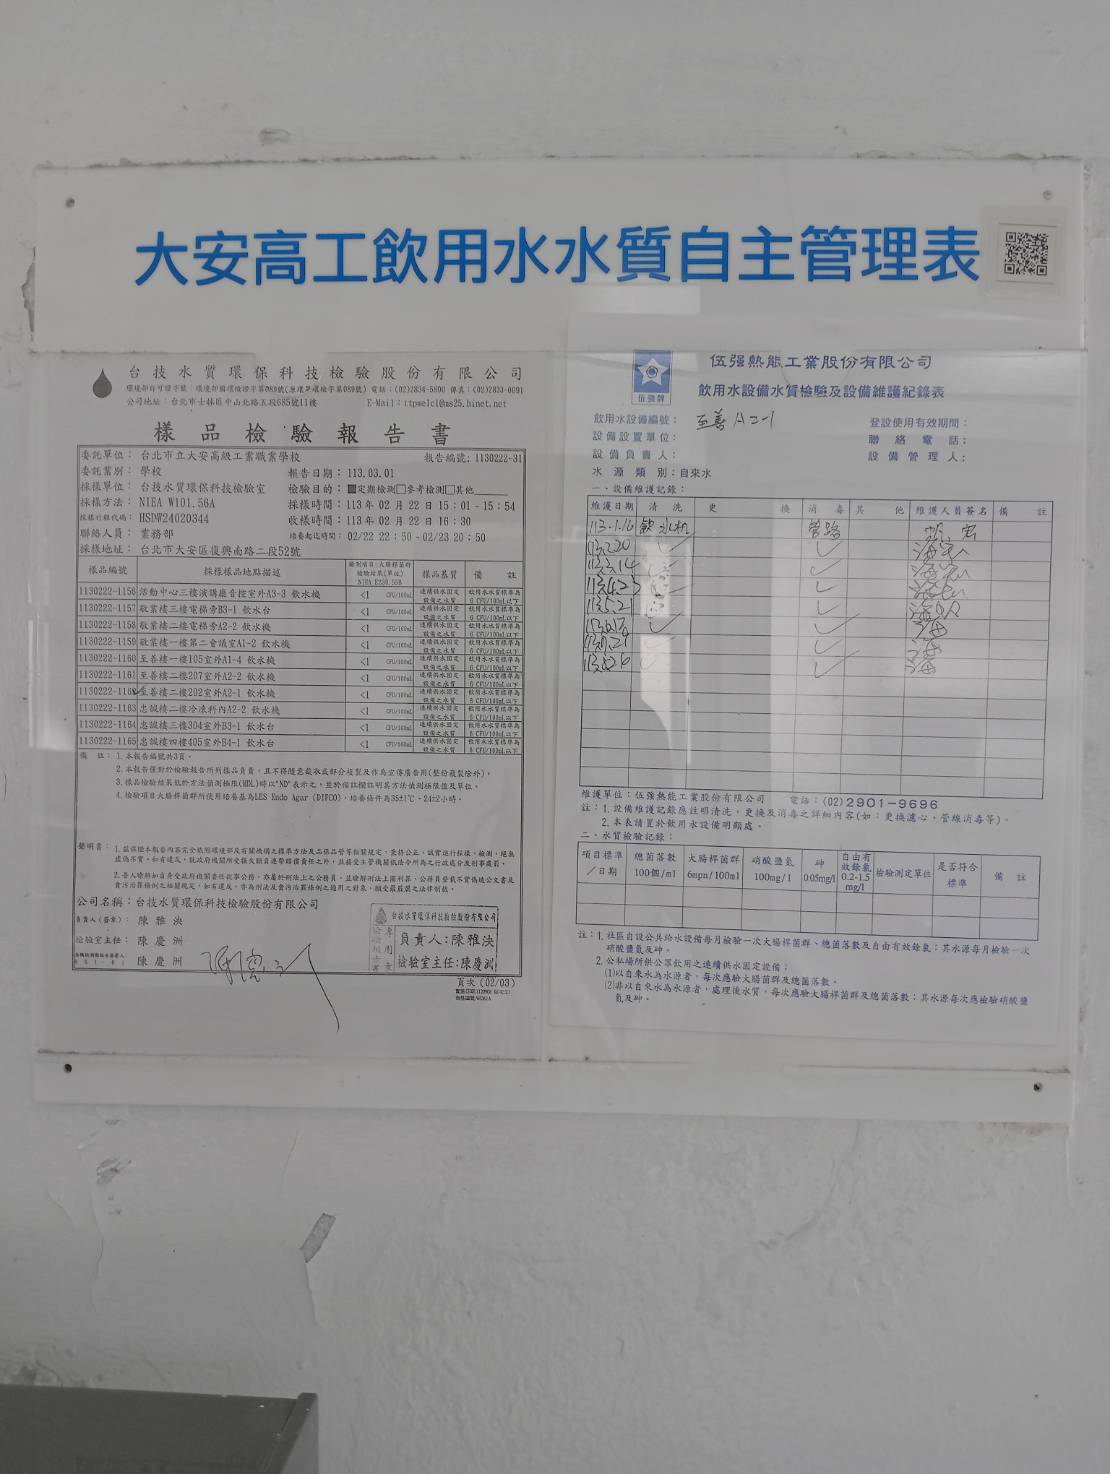 大安高工飲用水水質自主管理表
台技水質環保科技檢驗股份有限公司
公司地址：台北市士林區中山北路五段685號11樓 E-Mail：ttpwelcl@ms25.hinet.net
樣品檢驗報告書
委託單位：台北市立大安高級工業職業學校 報告編號：1130222-31
委託業別：學校 報告日期：113.03.01
採樣單位：台技水質環保科技檢驗室 檢驗目的：■定期檢測□參考檢測□其他
採樣方法：NIEA W101.56A 採樣時間：113 年 02 月 22 日 15：01 - 15：54
採樣行程代碼：HSDW24020344 收樣時間：113 年 02 月 22 日 16：30
聯絡人員：業務部 培養起迄時間：02/22 22：50 - 02/23 20：50
採樣地址：台北市大安區復興南路二段52號
樣品編號 採樣樣品地點描述 檢測項目：大腸桿菌群 檢驗結果(單位) NIEA E230.55B 樣品基質 備註
1130222-1156 活動中心三樓演講廳音控室外A3-3 飲水機 <1 CFU/100mL 連續供水固定設備之水質 飲用水水質標準為6 CFU/100mL以下
1130222-1157 敬業樓三樓電梯旁B3-1 飲水台 <1 CFU/100mL 連續供水固定設備之水質 飲用水水質標準為6 CFU/100mL以下
1130222-1158 敬業樓二樓電梯旁A2-2 飲水機 <1 CFU/100mL 連續供水固定設備之水質 飲用水水質標準為6 CFU/100mL以下
1130222-1159 敬業樓一樓第二會議室A1-2 飲水機 <1 CFU/100mL 連續供水固定設備之水質 飲用水水質標準為6 CFU/100mL以下
1130222-1160 至善樓一樓105室外A1-4 飲水機 <1 CFU/100mL 連續供水固定設備之水質 飲用水水質標準為6 CFU/100mL以下
1130222-1161 至善樓二樓207室外A2-2 飲水機 <1 CFU/100mL 連續供水固定設備之水質 飲用水水質標準為6 CFU/100mL以下
1130222-1162 至善樓二樓202室外A2-1 飲水機 <1 CFU/100mL 連續供水固定設備之水質 飲用水水質標準為6 CFU/100mL以下
1130222-1163 忠誠樓二樓冷凍科內A2-2 飲水機 <1 CFU/100mL 連續供水固定設備之水質 飲用水水質標準為6 CFU/100mL以下
1130222-1164 忠誠樓三樓304室外B3-1 飲水台 <1 CFU/100mL 連續供水固定設備之水質 飲用水水質標準為6 CFU/100mL以下
1130222-1165 忠誠樓四樓405室外B4-1 飲水台 <1 CFU/100mL 連續供水固定設備之水質 飲用水水質標準為6 CFU/100mL以下
備 註：1.本報告編號共3頁。
2.本報告僅對於檢驗報告所列樣品負責，且不得隨意截取或部分複製及作為宣傳廣告用(整份複製除外)。
3.樣品檢驗結果低於方法偵測極限(MDL)時以"ND"表示之，並於備註欄註明其方法偵測極限值及單位。
4.檢驗項目大腸桿菌群所使用培養基為LES Endo Agar (DIFCO)，培養條件為35±1℃、24±2小時。
聲明書：
公司名稱：台技水質環保科技檢驗股份有限公司
負責人(簽章)：陳雅泱
檢驗室主任：陳慶洲
陳慶洲
台技水質環保科技檢驗股份有限公司
負責人：陳雅泱
檢驗室主任：陳慶洲
頁次(02/03)
伍強牌
伍强熱能工業股份有限公司
飲用水設備水質檢驗及設備維護紀錄表
飲用水設備編號：至善A2-1 登設使用有效期間：
設備設置單位： 聯絡電話：
設備負責人： 設備管理人：
水源類別：自來水
一、設備維護記錄：
維護日期 清洗 更換 消毒 其他 維護人員簽名 備註
113-1-16 飲水机 管路
113.2.20
113.3.14
113.4.23
113.5.21
維護單位：伍強熱能工業股份有限公司 電話：(02)2901-9696
註：1.設備維護記錄應註明清洗、更換及消毒之詳細內容(如：更換濾心、管線消毒等)。
2.本表請置於飲用水設備明顯處。
二、水質檢驗記錄：
項目標準/日期 總菌落數 100個/ml 大腸桿菌群 6mpn/100ml 硝酸鹽氮 10mg/l 砷 0.05mg/l 自由有效餘氯 0.2-1.5 mg/l 檢驗測定單位 是否符合標準 備註
註：1.社區自設公共給水設備每月檢驗一次大腸桿菌群、總菌落數及自由有效餘氯；其水源每月檢驗一次
硝酸鹽氮及砷。
2.公私場所供公眾飲用之連續供水固定設備：
⑴以自來水為水源者，每次應驗大腸桿菌群及總菌落數。
⑵非以自來水為水源者，處理後水質，每次應驗大腸桿菌群及總菌落數；其水源每次應檢驗硝酸鹽
氮及砷。